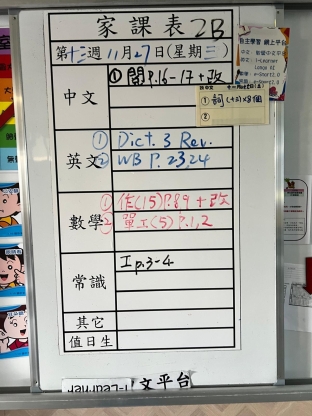 家課表 2B
第十三週 11月27日(星期三)
中文
① 閱 P.16-17 + 改
① 詞(十三)x3個
②
英文
① Dict. 3 Rev.
② WB P. 23,24
數學
① 作(15)P.89 + 改
② 單工(5)P.1,2
常識
工p.3-4
其它
值日生
自主學習 網上平台
文平台